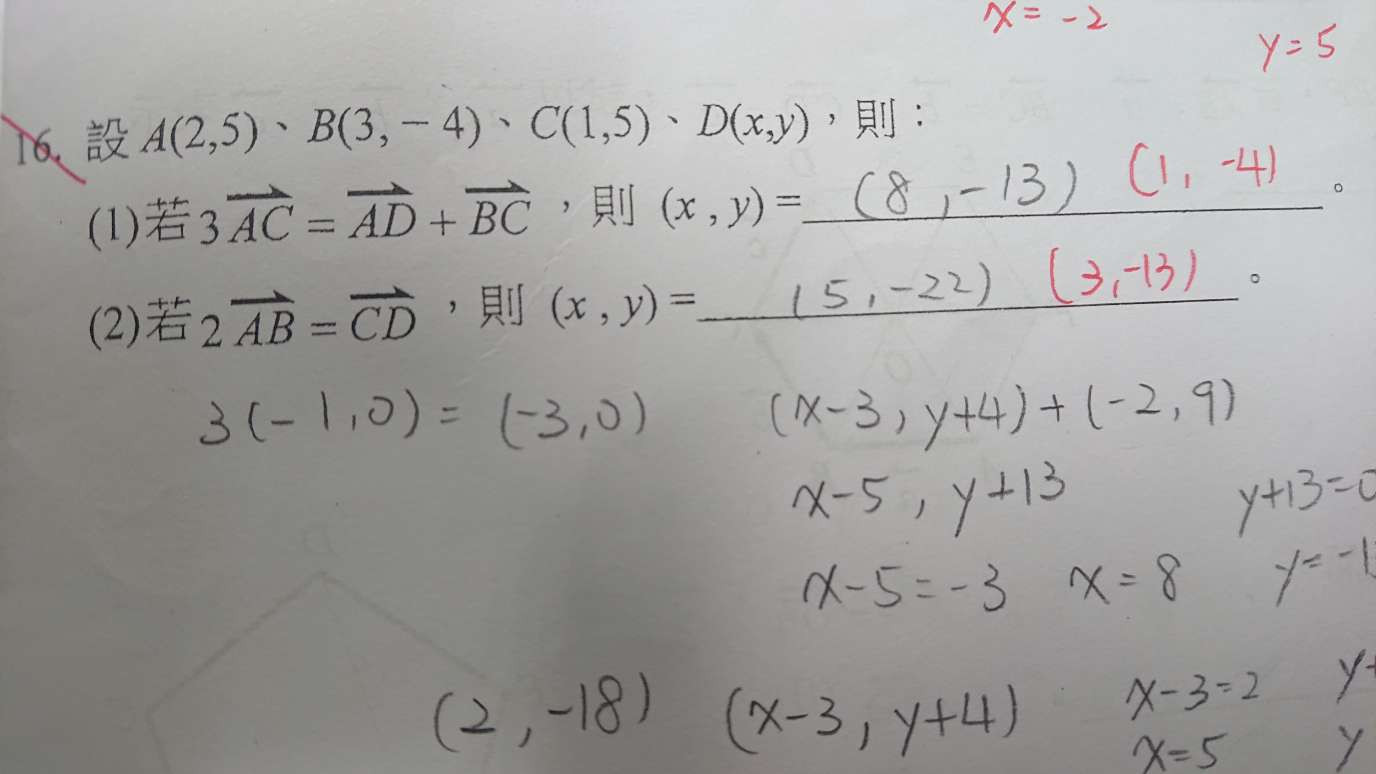 x = -2
y = 5
16. 設 A(2,5)、B(3,-4)、C(1,5)、D(x,y),則:
(1)若 3AC = AD + BC ,則 (x , y) = (8 , -13) (1, -4) 。
(2)若 2AB = CD ,則 (x , y) = (5, -22) (3,-13) 。
3(-1,0) = (-3,0) (x-3, y+4) + (-2,9)
x-5 , y+13 y+13=0
x-5=-3 x=8 y=-1
(2, -18) (x-3, y+4) x-3=2 y+
x=5 y